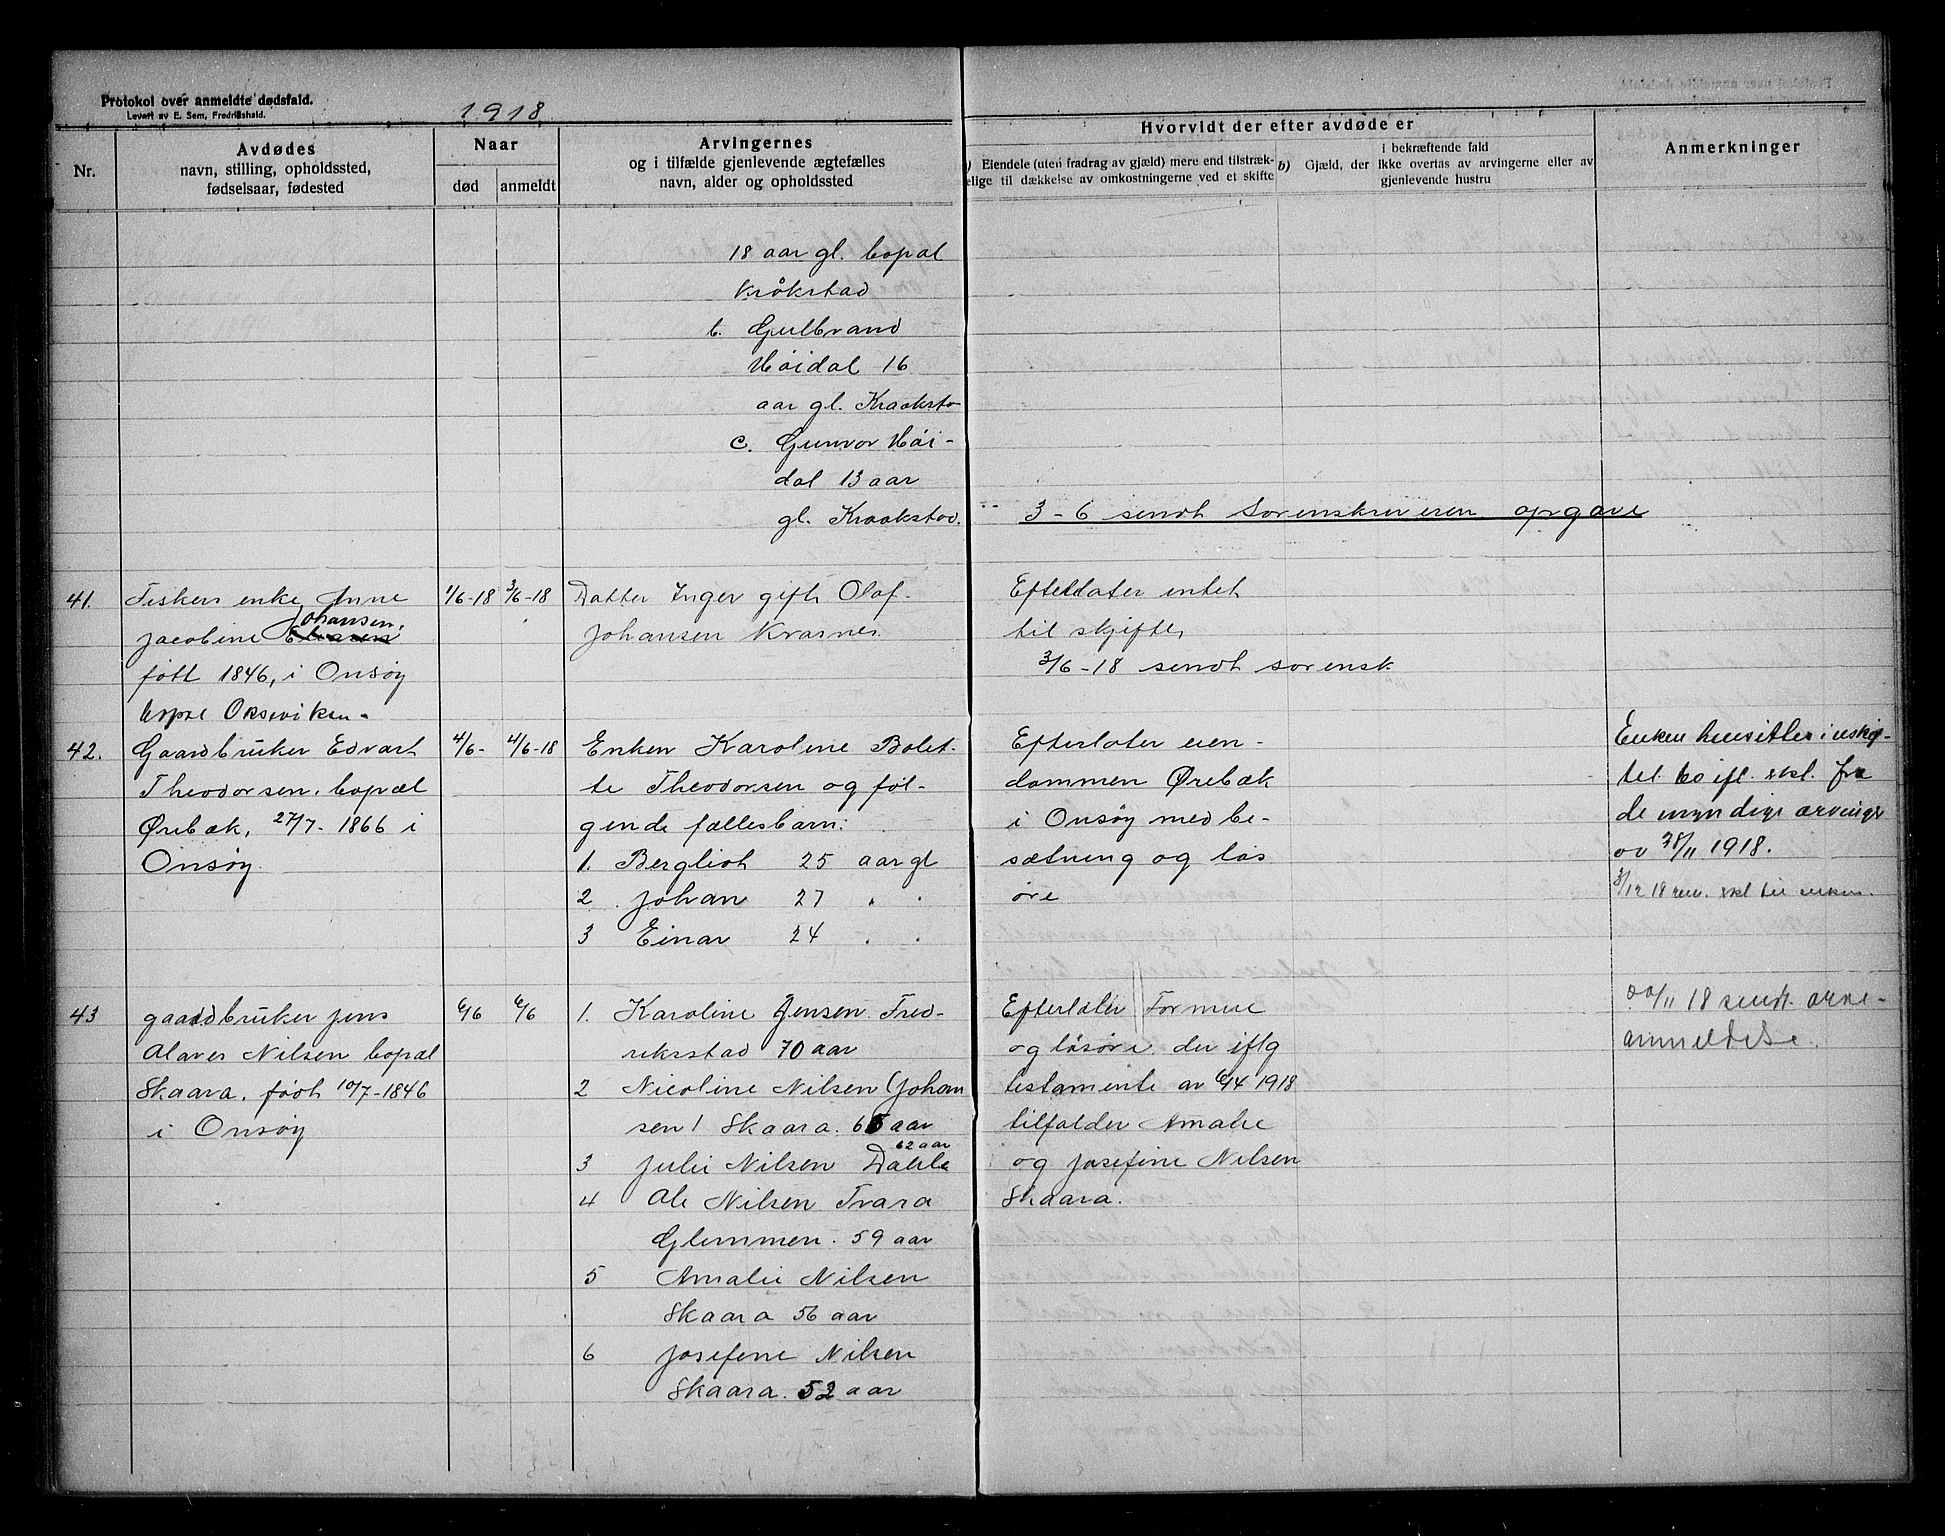 Protokol over anmeldte dødsfald.
Levert av E. Sem, Fredrikshald.
1918
Nr.
Avdødes
navn, stilling, opholdssted,
fødselsaar, fødested
Naar
død
anmeldt
Arvingernes
og i tilfælde gjenlevende ægtefælles
navn, alder og opholdssted
Hvorvidt der efter avdøde er
a) Eiendele (uten fradrag av gjæld) mere end tilstræk-
kelige til dækkelse av omkostningerne ved et skifte
b) Gjæld, der i bekræftende fald
ikke overtas av arvingerne eller av
gjenlevende hustru
Anmerkninger
18 aar gl. bopæl
Kråkstad
b. Gulbrand
Høidal 16
aar gl. Kraaksta
c. Gunvor Høi-
dal 13 aar
gl. Kraakstad.
3-6 sendt sorenskriveren opgave
41.
Fiskers enke Anne
Jacobine Johansen,
født 1846, i Onsøy
bopæl Oksviken.
1/6-18
3/6-18
Datter Inger gift Olaf
Johansen Kraanes.
Efterlater intet
til skifte,
3/6-18 sendt sorensk
42.
Gaardbruker Edvart
Theodorsen, bopæl
Ørebæk, 27/7-1866 i
Onsøy.
4/6-
4/6-18
Enken Karoline Bolet-
te Theodorsen og føl-
gende fællesbarn:
1. Bergliot 25 aar gl
2. Johan 27 " "
3 Einar 24 " "
Efterlater eien-
dommen Ørebæk
i Onsøy med be-
sætning og løs
øre
Enken hensitter i uskif-
tet bo ifl. skl. fra
de myndige arvinger
av 28/11 1918.
3/12 18 skl til enken.
43
gaardbruker Jens
Olaves Nilsen bopæl
Skaara, født 10/7-1846
i Onsøy
6/6
6/6
1. Karoline Jensen Fred-
rikstad 70 aar
2 Nicoline Nilsen (Johan
sen) Skaara. 65 aar
62 aar
3 Julie Nilsen Dahle
4 Ole Nilsen Trara
Glemmen. 59 aar
5 Amalie Nilsen
Skaara 56 aar
6 Josefine Nilsen
Skaara. 52 aar
Efterlater Formue
og løsøre. der iflg
testamente av 6/4 1918
tilfalder Amalie
og Josefine Nilsen
Skaara.
20/11 18 sendt arve-
anmeldelse.